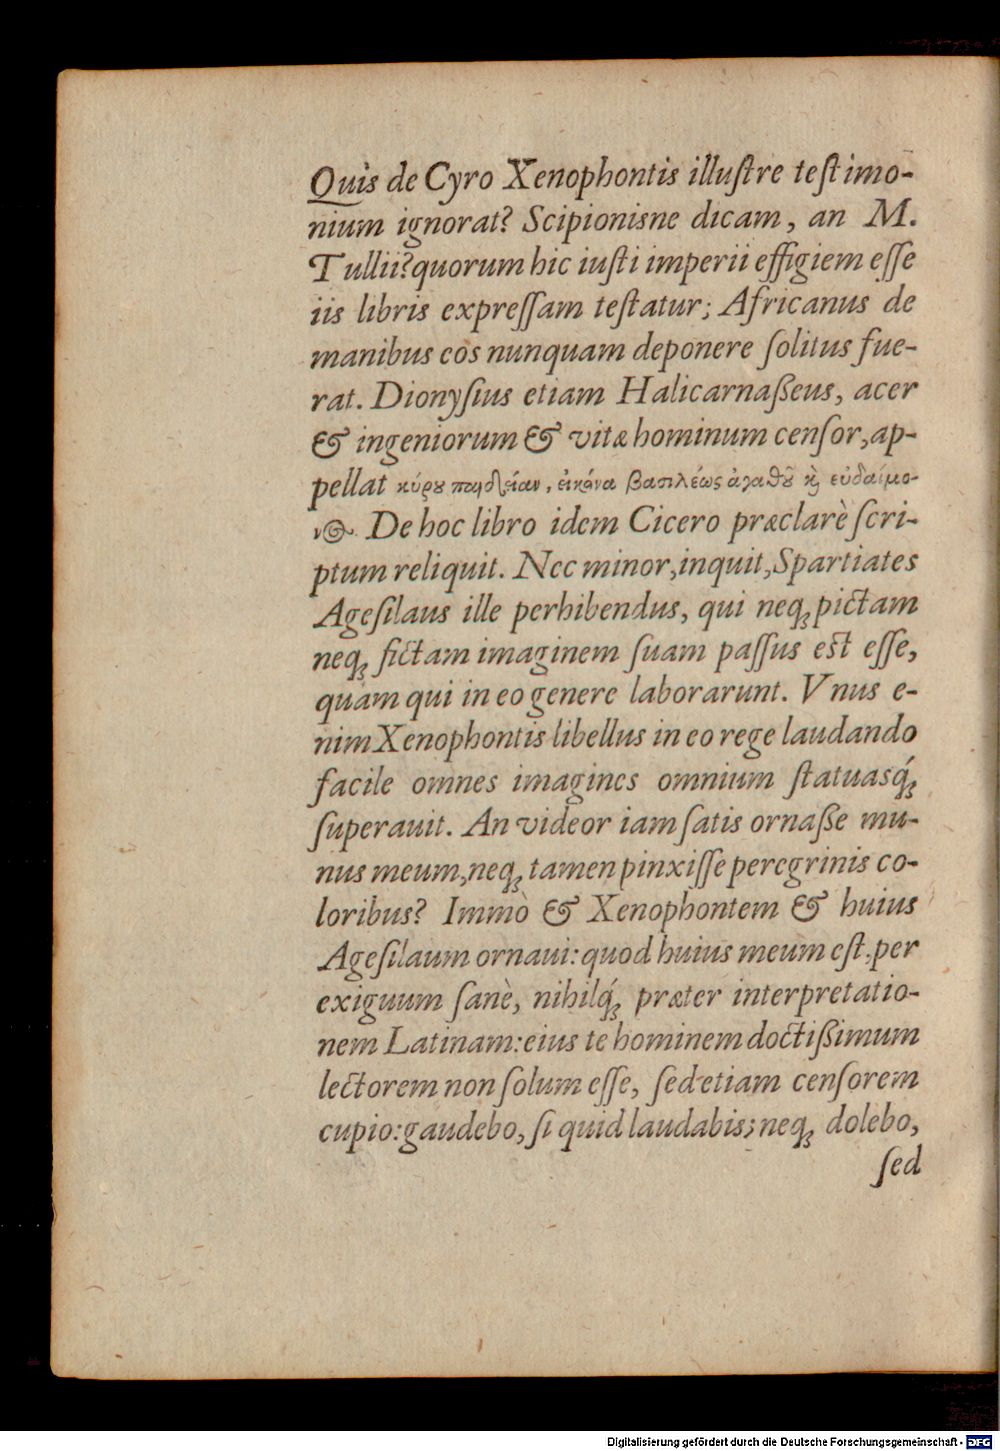 Quis de Cyro Xenophontis illuſtre teſtimo-
nium ignorat? Scipionisne dicam, an M.
Tullii? quorum hic iuſti imperii effigiem eſſe
iis libris expreſſam teſtatur; Africanus de
manibus eos nunquam deponere ſolitus fue-
rat. Dionyſius etiam Halicarnaßeus, acer
& ingeniorum & vitæ hominum cenſor, ap-
pellat κύρου παιδείαν, εἰκόνα βασιλέως ἀγαθοῦ καὶ εὐδαίμο-
νος. De hoc libro idem Cicero præclarè ſcri-
ptum reliquit. Nec minor, inquit, Spartiates
Ageſilaus ille perhibendus, qui neq; pictam
neq; fictam imaginem ſuam paſſus est eſſe,
quàm qui in eo genere laborarunt. Vnus e-
nim Xenophontis libellus in eo rege laudando
facile omnes imagines omnium ſtatuasq́;
ſuperauit. An videor iam ſatis ornaße mu-
nus meum, neq; tamen pinxiſſe peregrinis co-
loribus? Immò & Xenophontem & huius
Ageſilaum ornaui: quod huius meum eſt, per
exiguum ſanè, nihilq́; præter interpretatio-
nem Latinam: eius te hominem doctißimum
lectorem non ſolum eſſe, ſed etiam cenſorem
cupio: gaudebo, ſi quid laudabis; neq; dolebo,
ſed
Digitalisierung gefördert durch die Deutsche Forschungsgemeinschaft - DFG